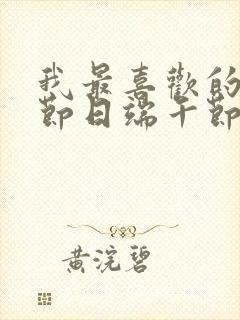 我最喜歡的
節日端午節
黃浣碧